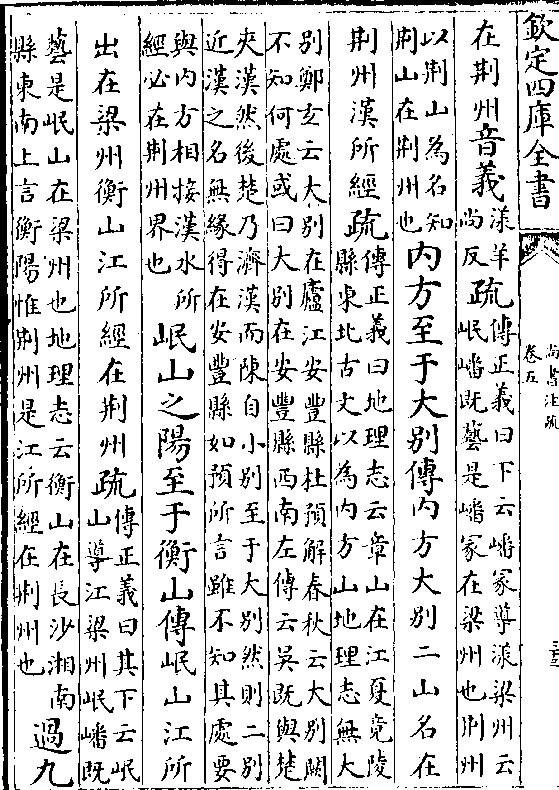 欽定四庫全書
尚書注疏
卷五
在荆州音義
漾羊
尚反
疏
傳正義曰下云嶓冢導漾梁州云
岷嶓既藝是嶓冢在梁州也荆州
以荆山為名知
荆山在荆州也
内方至于大别傳内方大别二山名在
荆州漢所經疏
傳正義曰地理志云章山在江夏竟陵
縣東北古文以為内方山地理志無大
别鄭玄云大别在廬江安豐縣杜預解春秋云大别闕
不知何處或曰大别在安豐縣西南左傳云吳既與楚
夾漢然後楚乃濟漢而陳自小别至于大别然則二别
近漢之名無緣得在安豐縣如預所言雖不知其處要
與内方相接漢水所
經必在荆州界也
岷山之陽至于衡山傳岷山江所
出在梁州衡山江所經在荆州疏
傳正義曰其下云岷
山導江梁州岷嶓既
藝是岷山在梁州也地理志云衡山在長沙湘南
縣東南上言衡陽惟荆州是江所經在荆州也
過九